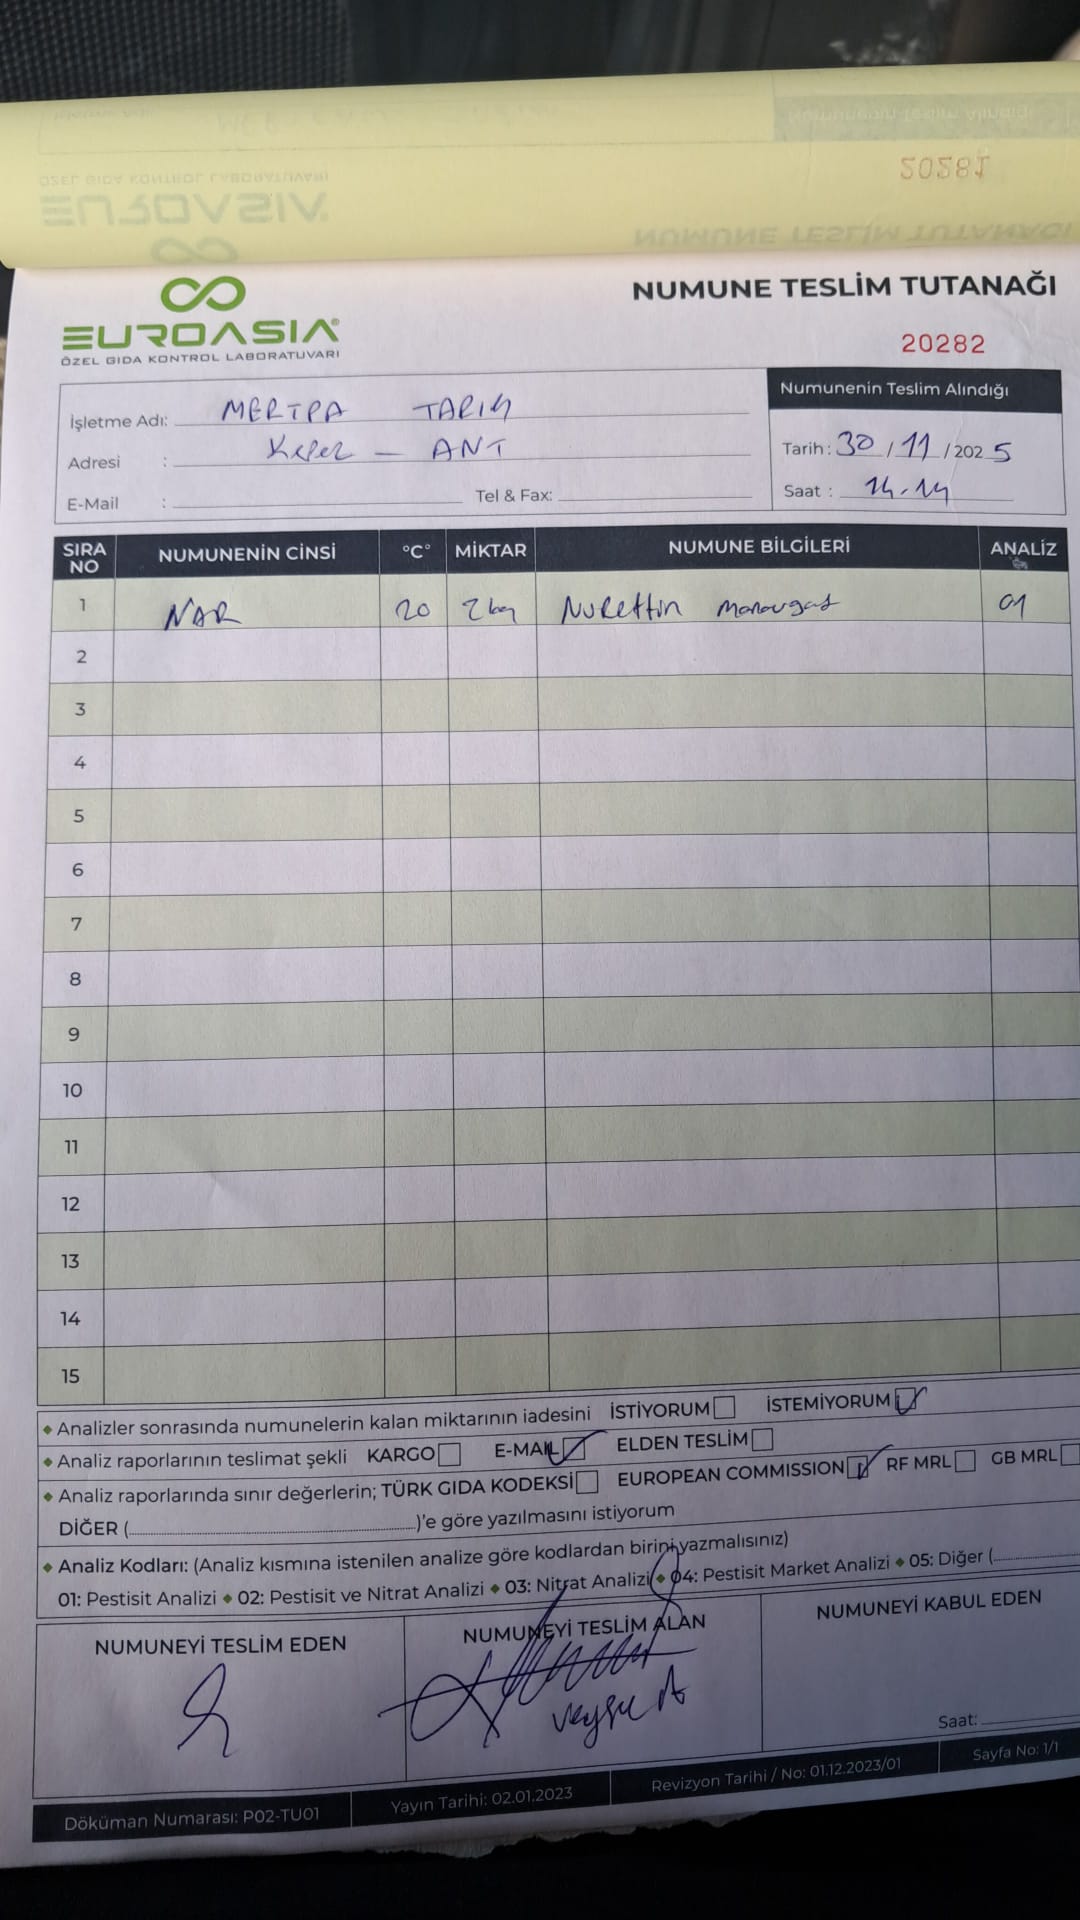 EUROASIA®
ÖZEL GIDA KONTROL LABORATUVARI
NUMUNE TESLİM TUTANAĞI
20281
20282
İşletme Adı: MERTPA TARIM
Adresi : Kepez - ANT
E-Mail : Tel & Fax:
Numunenin Teslim Alındığı
Tarih: 30 / 11 / 2025
Saat : 14.14
SIRA NO NUMUNENİN CİNSİ °C° MİKTAR NUMUNE BİLGİLERİ ANALİZ
1 NAR 20 2 kg Nurettin Manavgat 01
2
3
4
5
6
7
8
9
10
11
12
13
14
15
Analizler sonrasında numunelerin kalan miktarının iadesini İSTİYORUM İSTEMİYORUM
Analiz raporlarının teslimat şekli KARGO E-MAIL ELDEN TESLİM
Analiz raporlarında sınır değerlerin; TÜRK GIDA KODEKSİ EUROPEAN COMMISSION RF MRL GB MRL
DİĞER (..........)'e göre yazılmasını istiyorum
Analiz Kodları: (Analiz kısmına istenilen analize göre kodlardan birini yazmalısınız)
01: Pestisit Analizi 02: Pestisit ve Nitrat Analizi 03: Nitrat Analizi 04: Pestisit Market Analizi 05: Diğer (..........
NUMUNEYİ TESLİM EDEN NUMUNEYİ TESLİM ALAN NUMUNEYİ KABUL EDEN
Saat:
Döküman Numarası: P02-TU01 Yayın Tarihi: 02.01.2023 Revizyon Tarihi / No: 01.12.2023/01 Sayfa No: 1/1